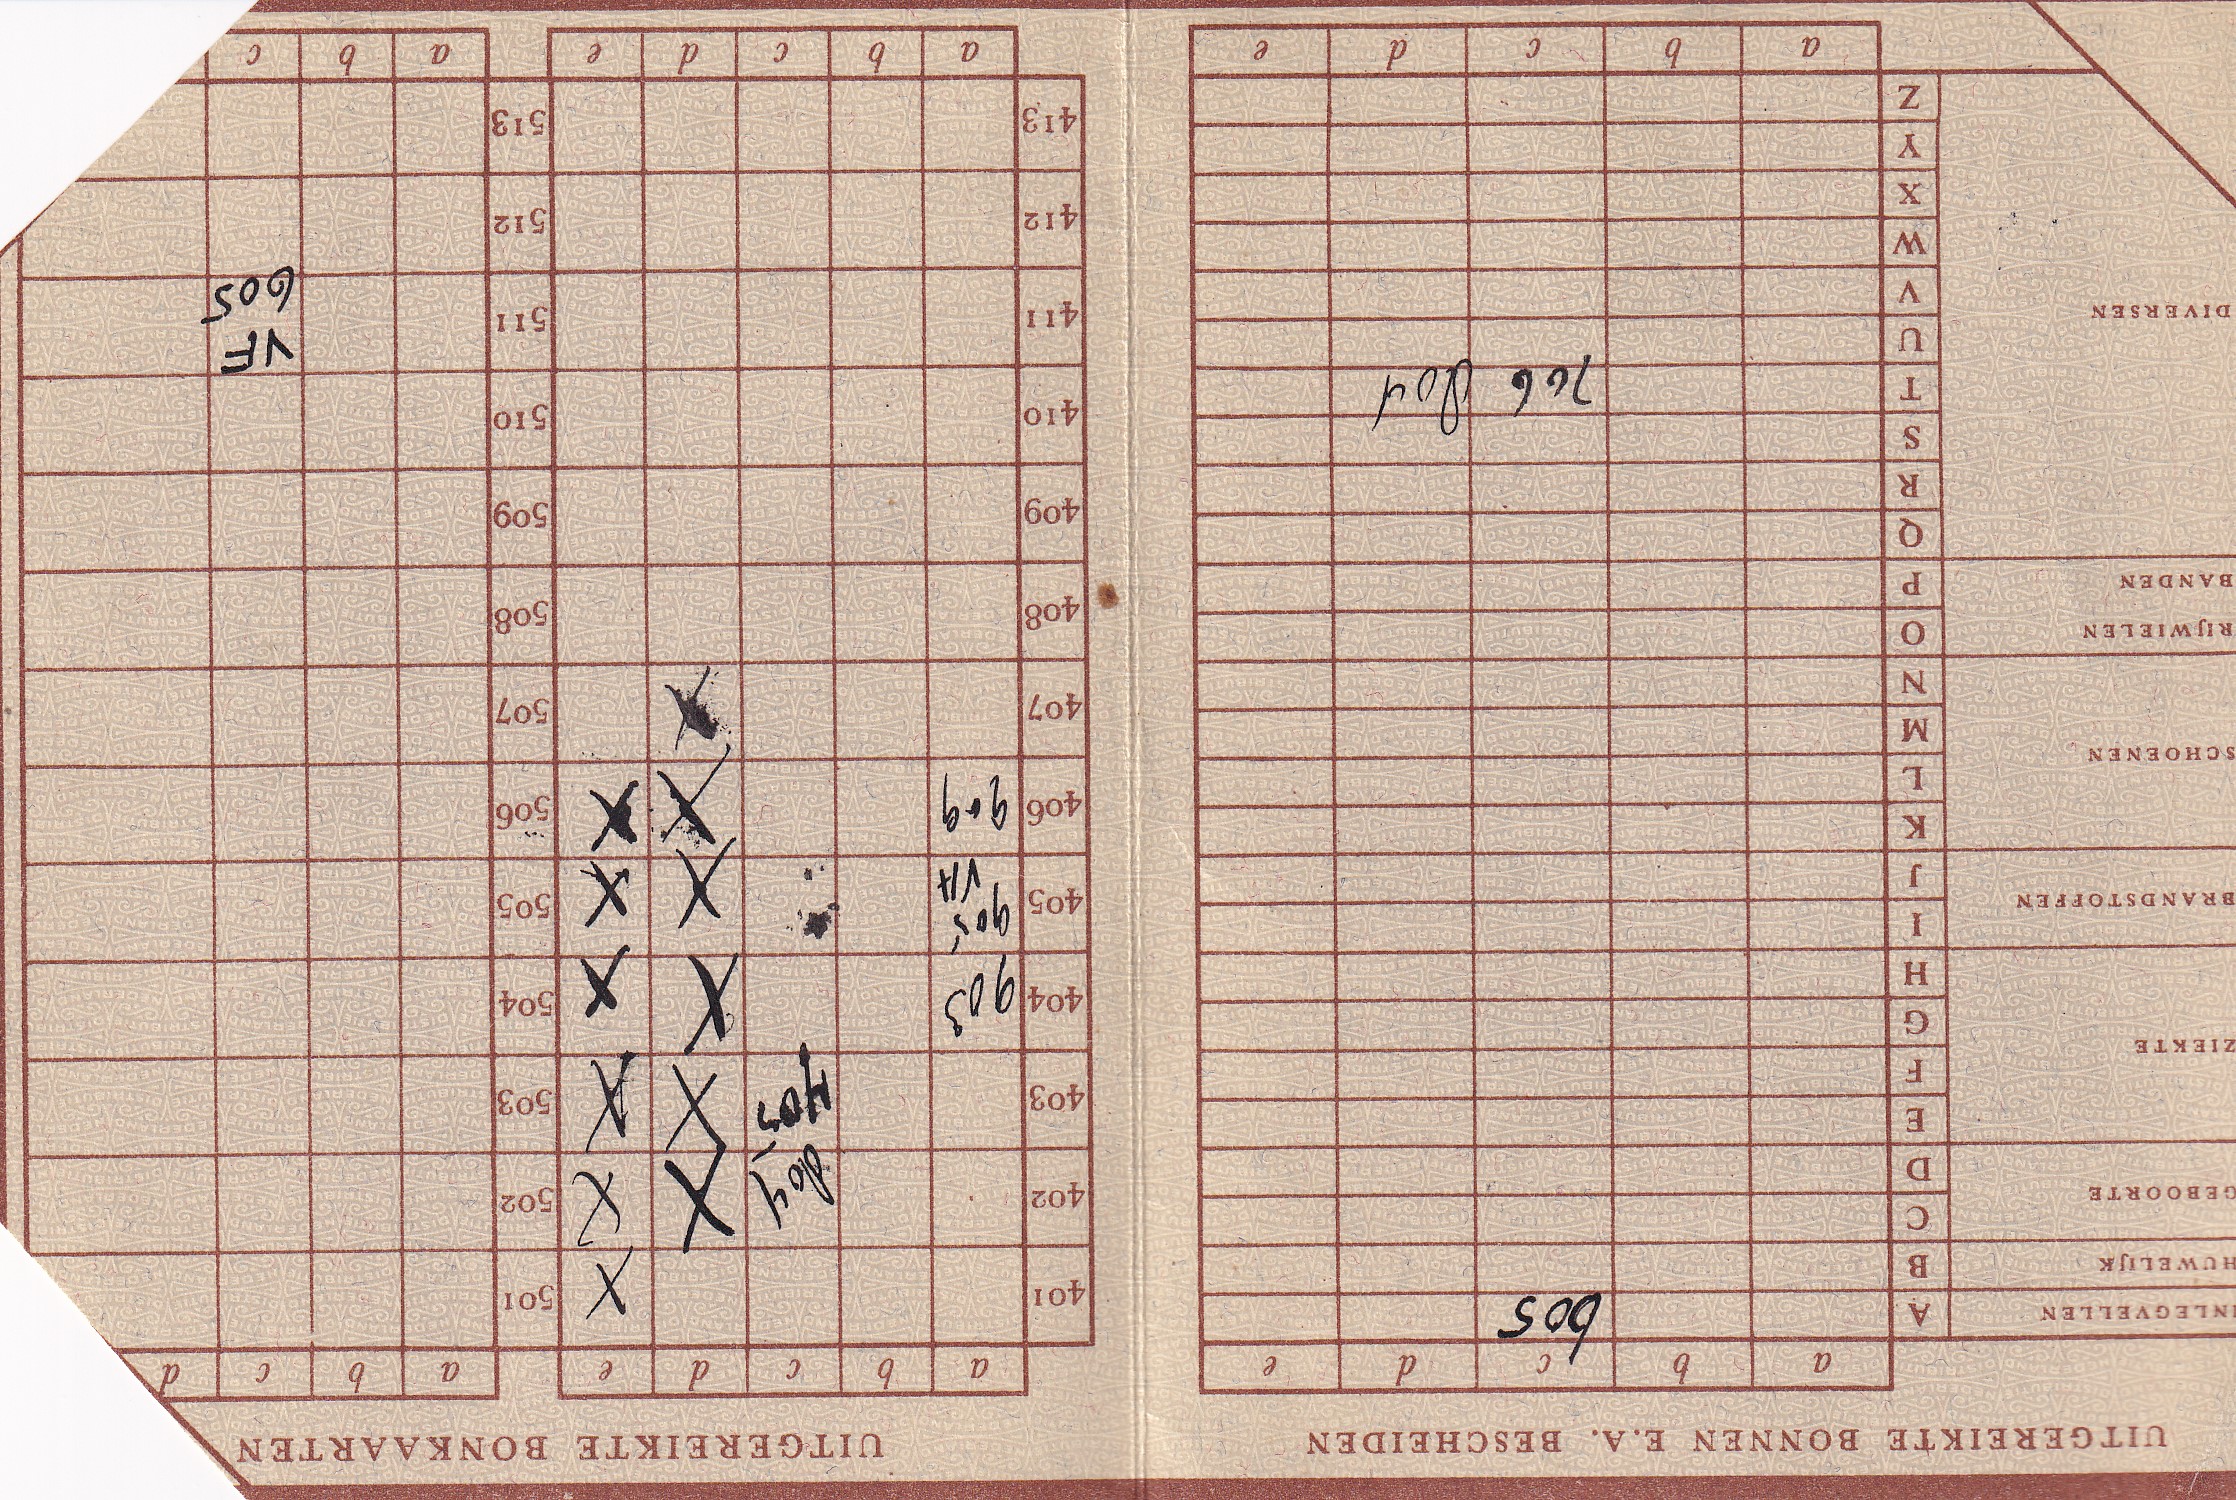 UITGEREIKTE BONNEN E.A. BESCHEIDEN
a b c d e
NLEGVELLEN A 605
HUWELIJK B
GEBOORTE C
D
ZIEKTE E
F
G
H
BRANDSTOFFEN I
J
SCHOENEN K
L
M
N
RIJWIELEN O
BANDEN P
DIVERSEN Q
R
S
T 766 804
U
V
W
X
Y
Z
a b c d e
UITGEREIKTE BONKAARTEN
a b c d e a b c d
401 X 501
402 804 X X 502
403 703 X X 503
404 903 X X 504
405 905 X X 505
VA
406 909 X X 506
407 X 507
408 508
409 509
410 510
411 511 VF
605
412 512
413 513
a b c d e a b c